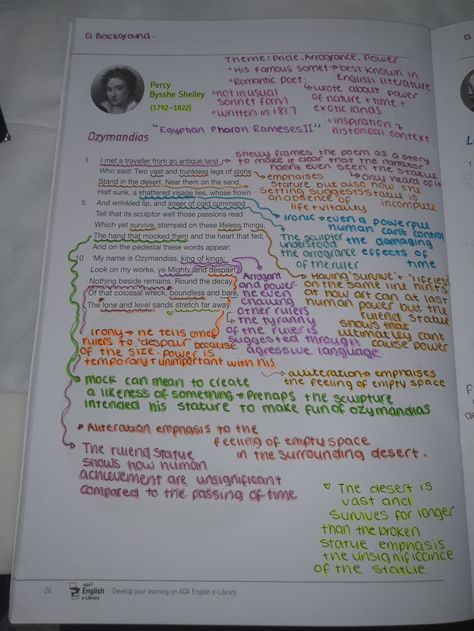 Background.
Theme: Pride, Arrogance, Power
• His famous sonnet → best known in
English literature
• Romantic poet:
↳ wrote about power
of nature + time +
exotic lands
• not in usual
sonnet form
• written in 1817
↳ inspiration +
historical context
Percy
Bysshe Shelley
(1792–1822)
"Egyptian Pharoh Rameses II"
Ozymandias
shelly frames the poem as a story
to make it clear that the narrator
hasn't even seen the statue
↳ only heard of it
1 I met a traveller from an antique land
Who said: Two vast and trunkless legs of stone
Stand in the desert. Near them on the sand,
Half sunk, a shattered visage lies, whose frown
5 And wrinkled lip, and sneer of cold command
Tell that its sculptor well those passions read
Which yet survive, stamped on these lifeless things,
The hand that mocked them and the heart that fed;
And on the pedestal these words appear:
10 'My name is Ozymandias, king of kings:
Look on my works, ye Mighty, and despair!'
Nothing beside remains. Round the decay
Of that colossal wreck, boundless and bare,
The lone and level sands stretch far away.
→ emphasises
stature but also how the
setting suggests statue is
an absence of
life + vitality
incomplete
→ ironic → even a powerful
human can't control
the damaging
effects of
time
The sculptor
understood
the arrogance
of the ruler
→ Having 'survive' + 'lifeless'
on the same line hints
at how art can at last
human power but the
ruiend statue
shows that
ultimatley cant
cause power
Arrogant
and power
he even
chawing
other rulers
↳ the tyranny
of the ruler is
suggested through
agressive language.
irony → he tells other
rulers to 'despair' because
of the size. Power is
temporary + unimportant with his
→ alliteration → empraises
the feeling of empty space
→ mock can mean to create
a likeness of something → Prehaps the sculpture
intended his stature to make fun of ozymandias
* Aliteration emphasis to the
feeling of empty space
in the surrounding desert.
→ The ruiend statue
shows how human
achievement are unsignificant
compared to the passing of time
♡ The desert is
vast and
survives for longer
than the broken
statue emphasis
the unsignificance
of the statue
26
AQA
English
e-Library
Develop your learning on AQA English e-Library